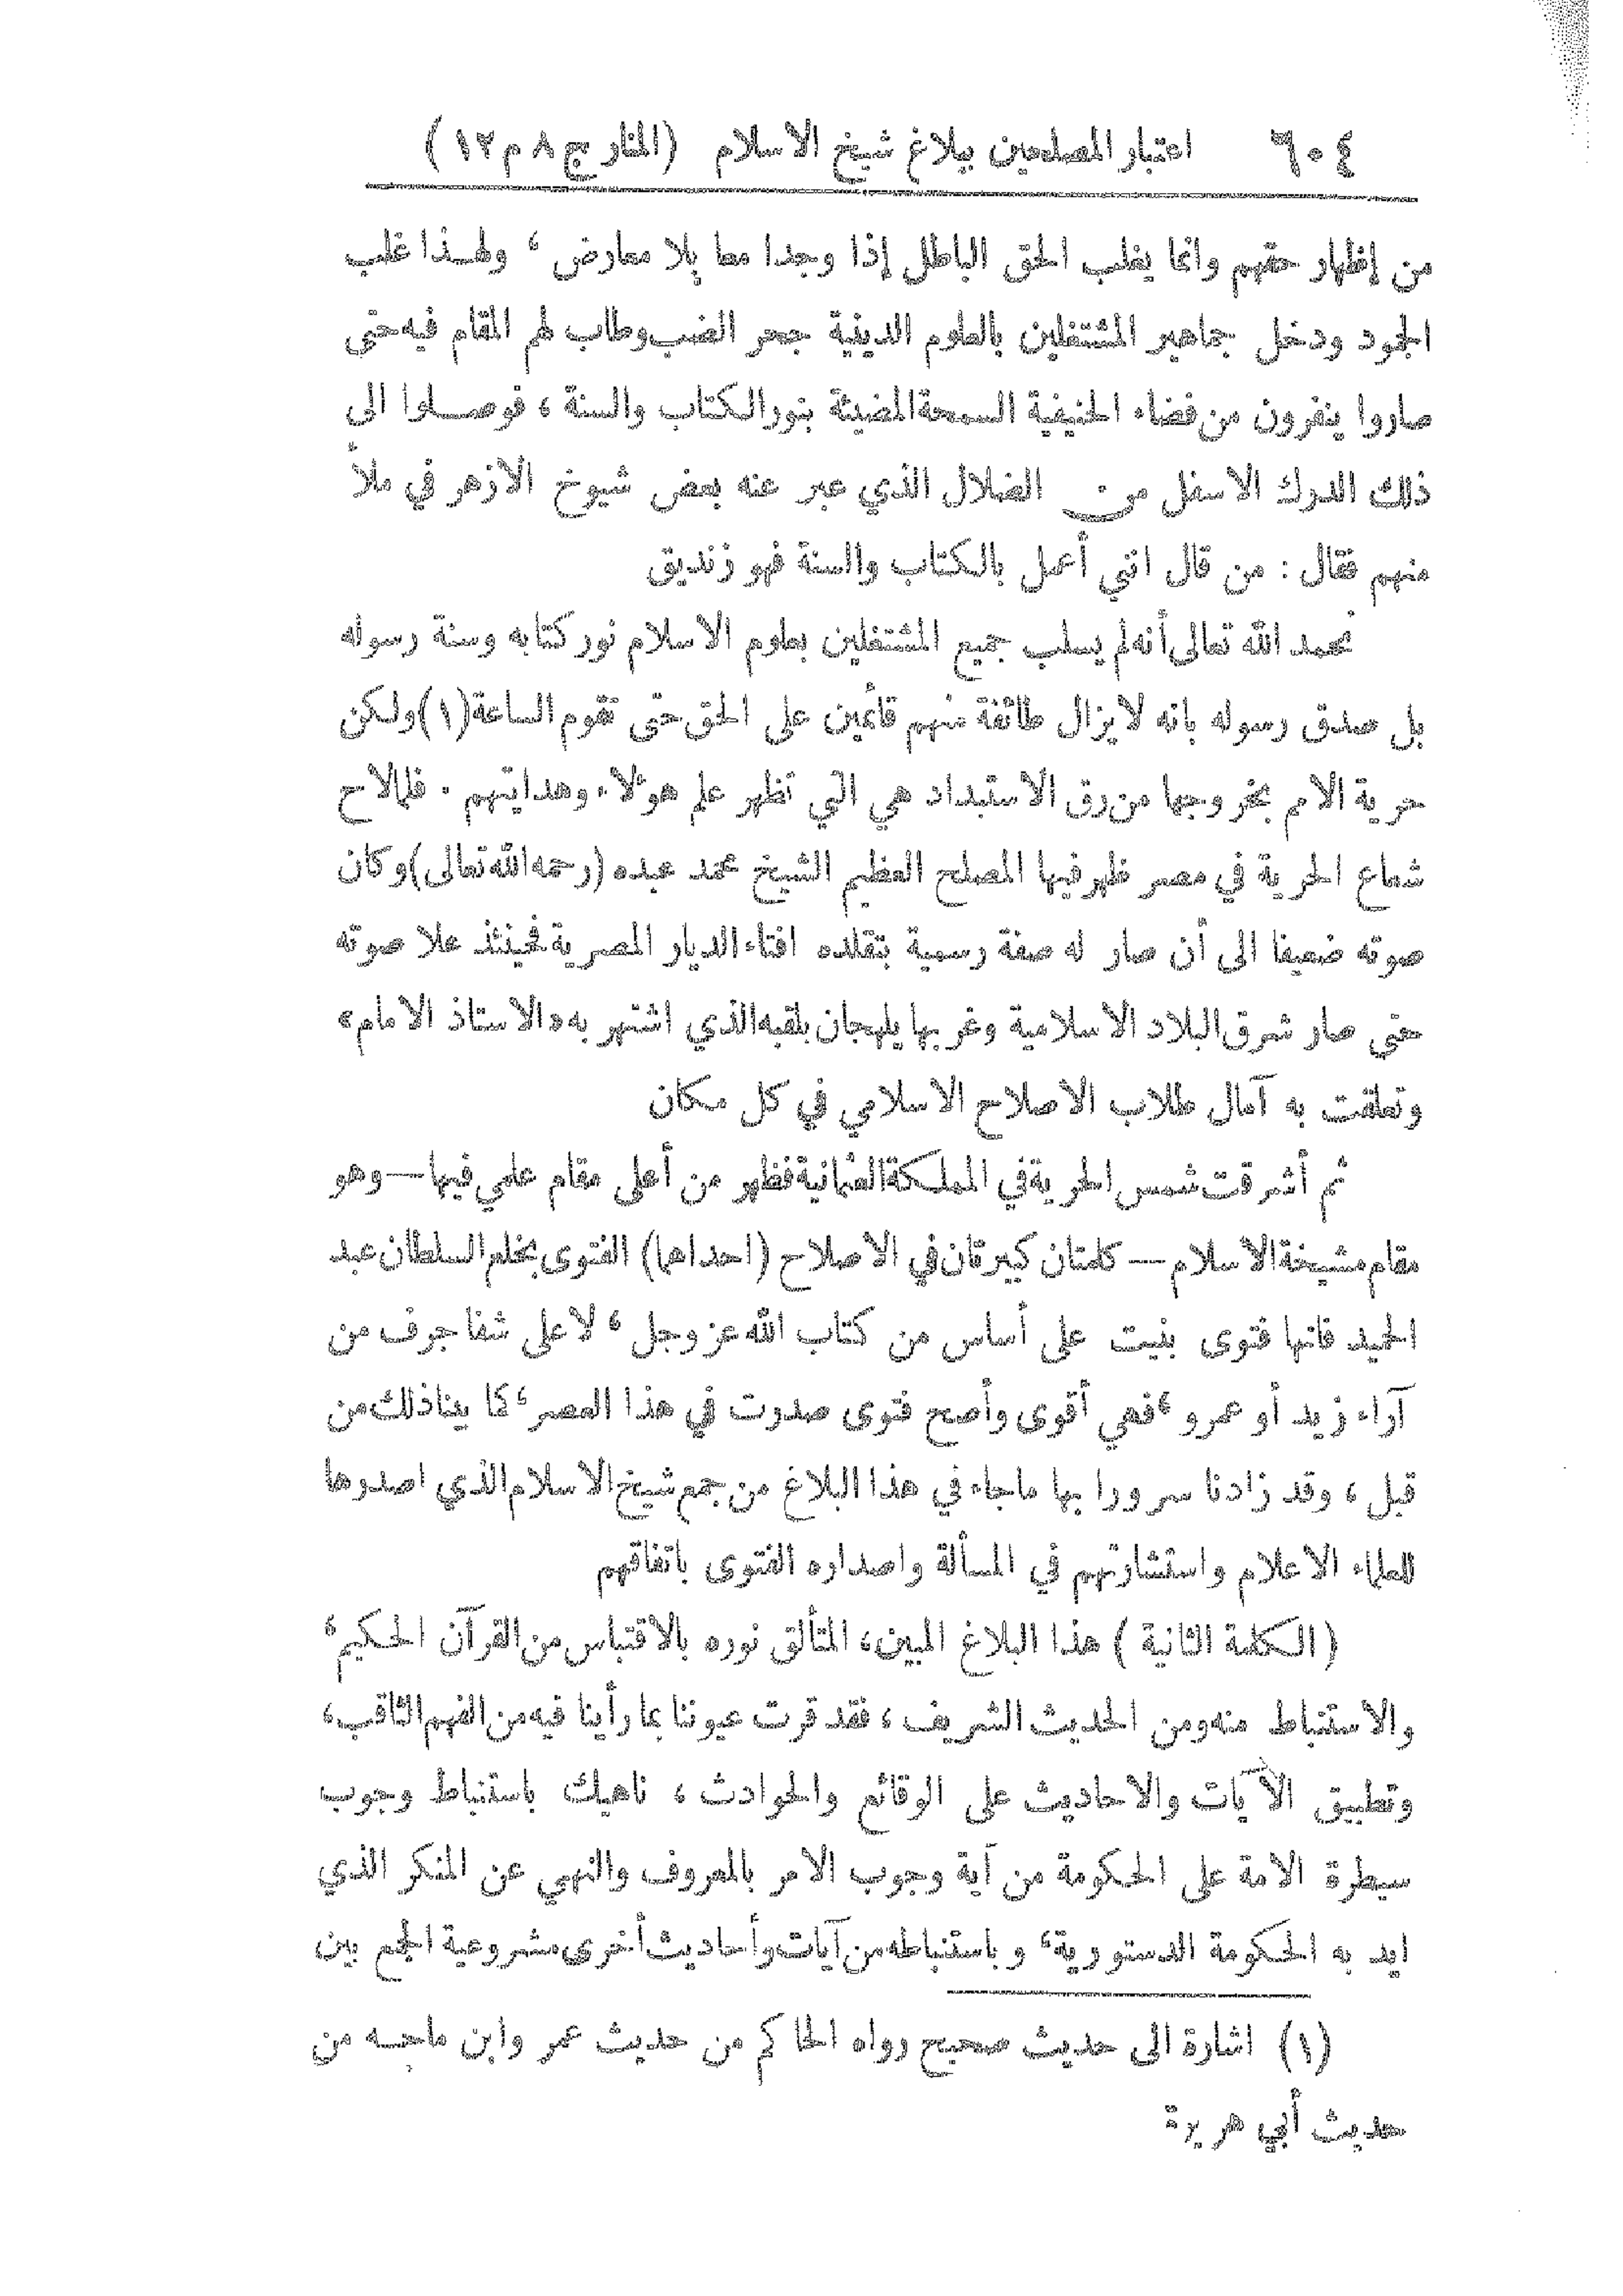 ٦٠٤ اعتبار المصلحين ببلاغ شيخ الاسلام (المنار ج ٨ م ١٢)
من إظهار حقهم وانما يغلب الحق الباطل إذا وجدا معا بلا معارض ، ولهذا غلب
الجمود ودخل جماهير المشتغلين بالعلوم الدينية جحر الضب وطاب لهم المقام فيه حتى
صاروا ينفرون من فضاء الحنيفية السمحة المضيئة بنور الكتاب والسنة ، فوصلوا الى
ذلك الدرك الاسفل من الضلال الذي عبر عنه بعض شيوخ الازهر في ملأ
منهم فقال : من قال انني أعمل بالكتاب والسنة فهو زنديق
نحمد الله تعالى أنه لم يسلب جميع المشتغلين بعلوم الاسلام نور كتابه وسنة رسوله
بل صدق رسوله بانه لا يزال طائفة منهم قائمين على الحق حتى تقوم الساعة (١) ولكن
حرية الامم بخروجها من رق الاستبداد هي التي تظهر علم هؤلاء وهدايتهم . فلما لاح
شعاع الحرية في مصر ظهر فيها المصلح العظيم الشيخ محمد عبده (رحمه الله تعالى) وكان
صوته ضعيفا الى أن صار له صفة رسمية بتقلده افتاء الديار المصرية فحينئذ علا صوته
حتى صار شرق البلاد الاسلامية وغربها يلهجان بلقبه الذي اشتهر به «الاستاذ الامام»
وتعلقت به آمال طلاب الاصلاح الاسلامي في كل مكان
ثم أشرقت شمس الحرية في المملكة العثمانية فظهر من أعلى مقام علمي فيها — وهو
مقام مشيخة الاسلام — كلمتان كبيرتان في الاصلاح (احداهما) الفتوى بخلع السلطان عبد
الحميد فانها فتوى بنيت على أساس من كتاب الله عز وجل ، لا على شفا جرف من
آراء زيد أو عمرو ، فهي أقوى وأصح فتوى صدرت في هذا العصر ، كما بينا ذلك من
قبل ، وقد زادنا سرورا بها ما جاء في هذا البلاغ من جمع شيخ الاسلام الذي اصدرها
للعلماء الاعلام واستشارتهم في المسألة واصداره الفتوى باتفاقهم
(الكلمة الثانية) هذا البلاغ المبين، المتألق نوره بالاقتباس من القرآن الحكيم ،
والاستنباط منه ومن الحديث الشريف ، فقد قرت عيوننا بما رأينا فيه من الفهم الثاقب،
وتطبيق الآيات والاحاديث على الوقائع والحوادث ، ناهيك باستنباط وجوب
سيطرة الامة على الحكومة من آية وجوب الامر بالمعروف والنهي عن المنكر الذي
ايد به الحكومة الدستورية ، وباستنباطه من آيات وأحاديث أخرى مشروعية الجمع بين
(١) اشارة الى حديث صحيح رواه الحاكم من حديث عمر وابن ماجه من
حديث أبي هريرة